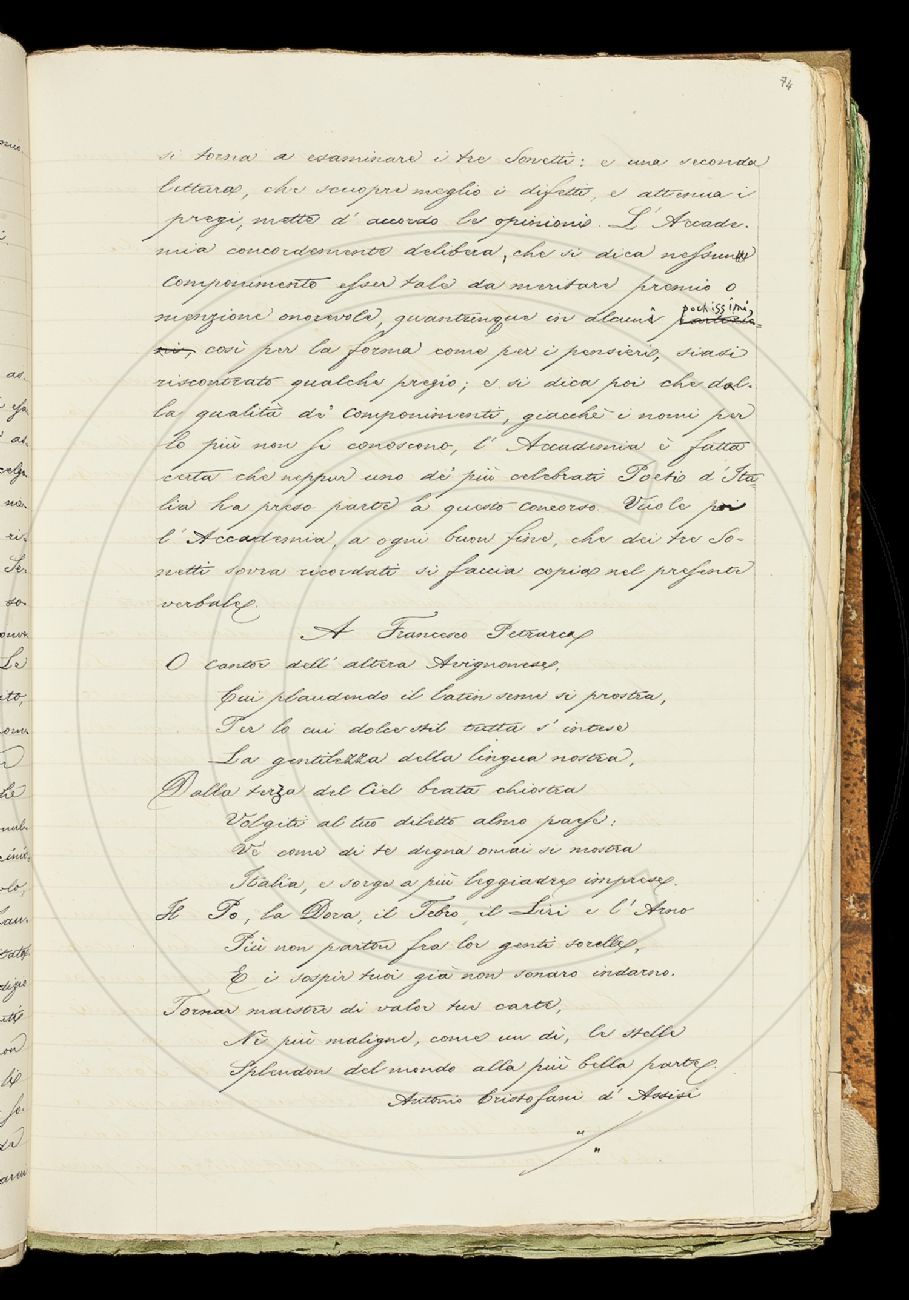 74
si torna a esaminare i tre Sonetti: e una seconda
lettura, che scuopre meglio i difetti, e attenua i
pregi, mette d'accordo le opinioni. L'Accade-
mia concordemente delibera, che si dica nessun
componimento esser tale da meritare premio o
menzione onorevole, quantunque in alcuni pochissimi,
così per la forma come per i pensieri, siasi
riscontrato qualche pregio; e si dica poi che dal-
la qualità de' componimenti, giacchè i nomi per
lo più non si conoscono, l'Accademia è fatta
certa che neppur uno de' più celebrati Poeti d'Ita
lia ha preso parte a questo concorso. Vuole poi
l'Accademia, a ogni buon fine, che dei tre So-
netti sovra ricordati si faccia copia nel presente
verbale.
A Francesco Petrarca
O cantor dell'altera Avignonese,
Cui plaudendo il latin seme si prostra,
Per lo cui dolce stil tutta s'intese
La gentilezza della lingua nostra,
Dalla terza del Ciel beata chiostra
Volgiti al tuo diletto almo paese:
Ve' come di te degna omai si mostra
Italia, e sorge a più leggiadre imprese.
Il Po, la Dora, il Tebro, il Liri e l'Arno
Più non parton fra lor genti sorelle,
E i sospir tuoi già non sonaro indarno.
Tornar maestre di valor tue carte,
Nè più maligne, come un dì, le stelle
Splendon del mondo alla più bella parte.
Antonio Cristofani d'Assisi